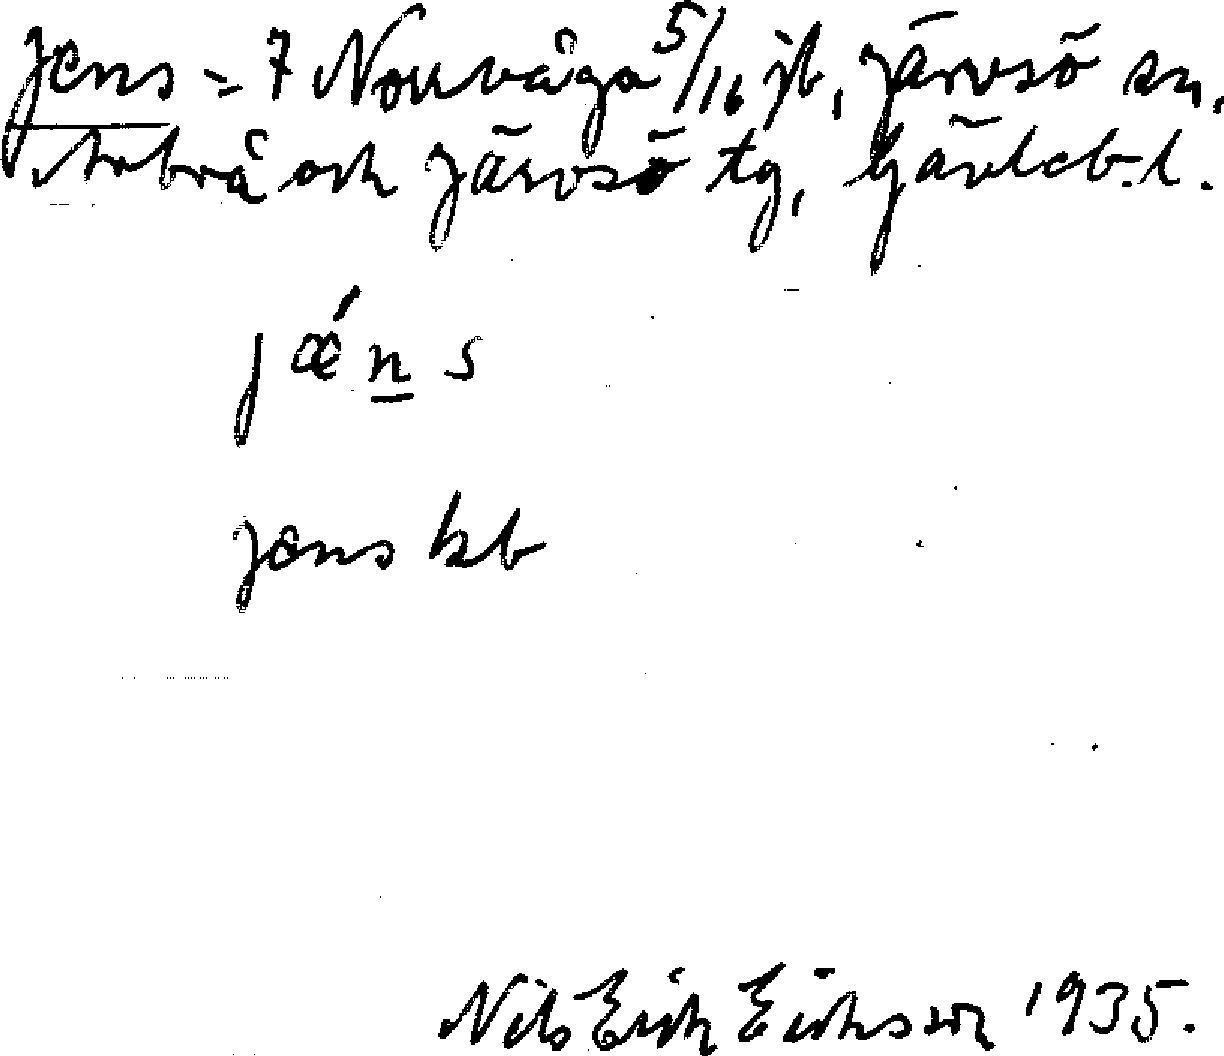 Jens = 7 Norrvåga 5/16 jb, Järvsö sn,
Arbrå och Järvsö tg, Gävleb. l.
jǽn̲s
Jens kb
Nils Erik Eriksson 1935.